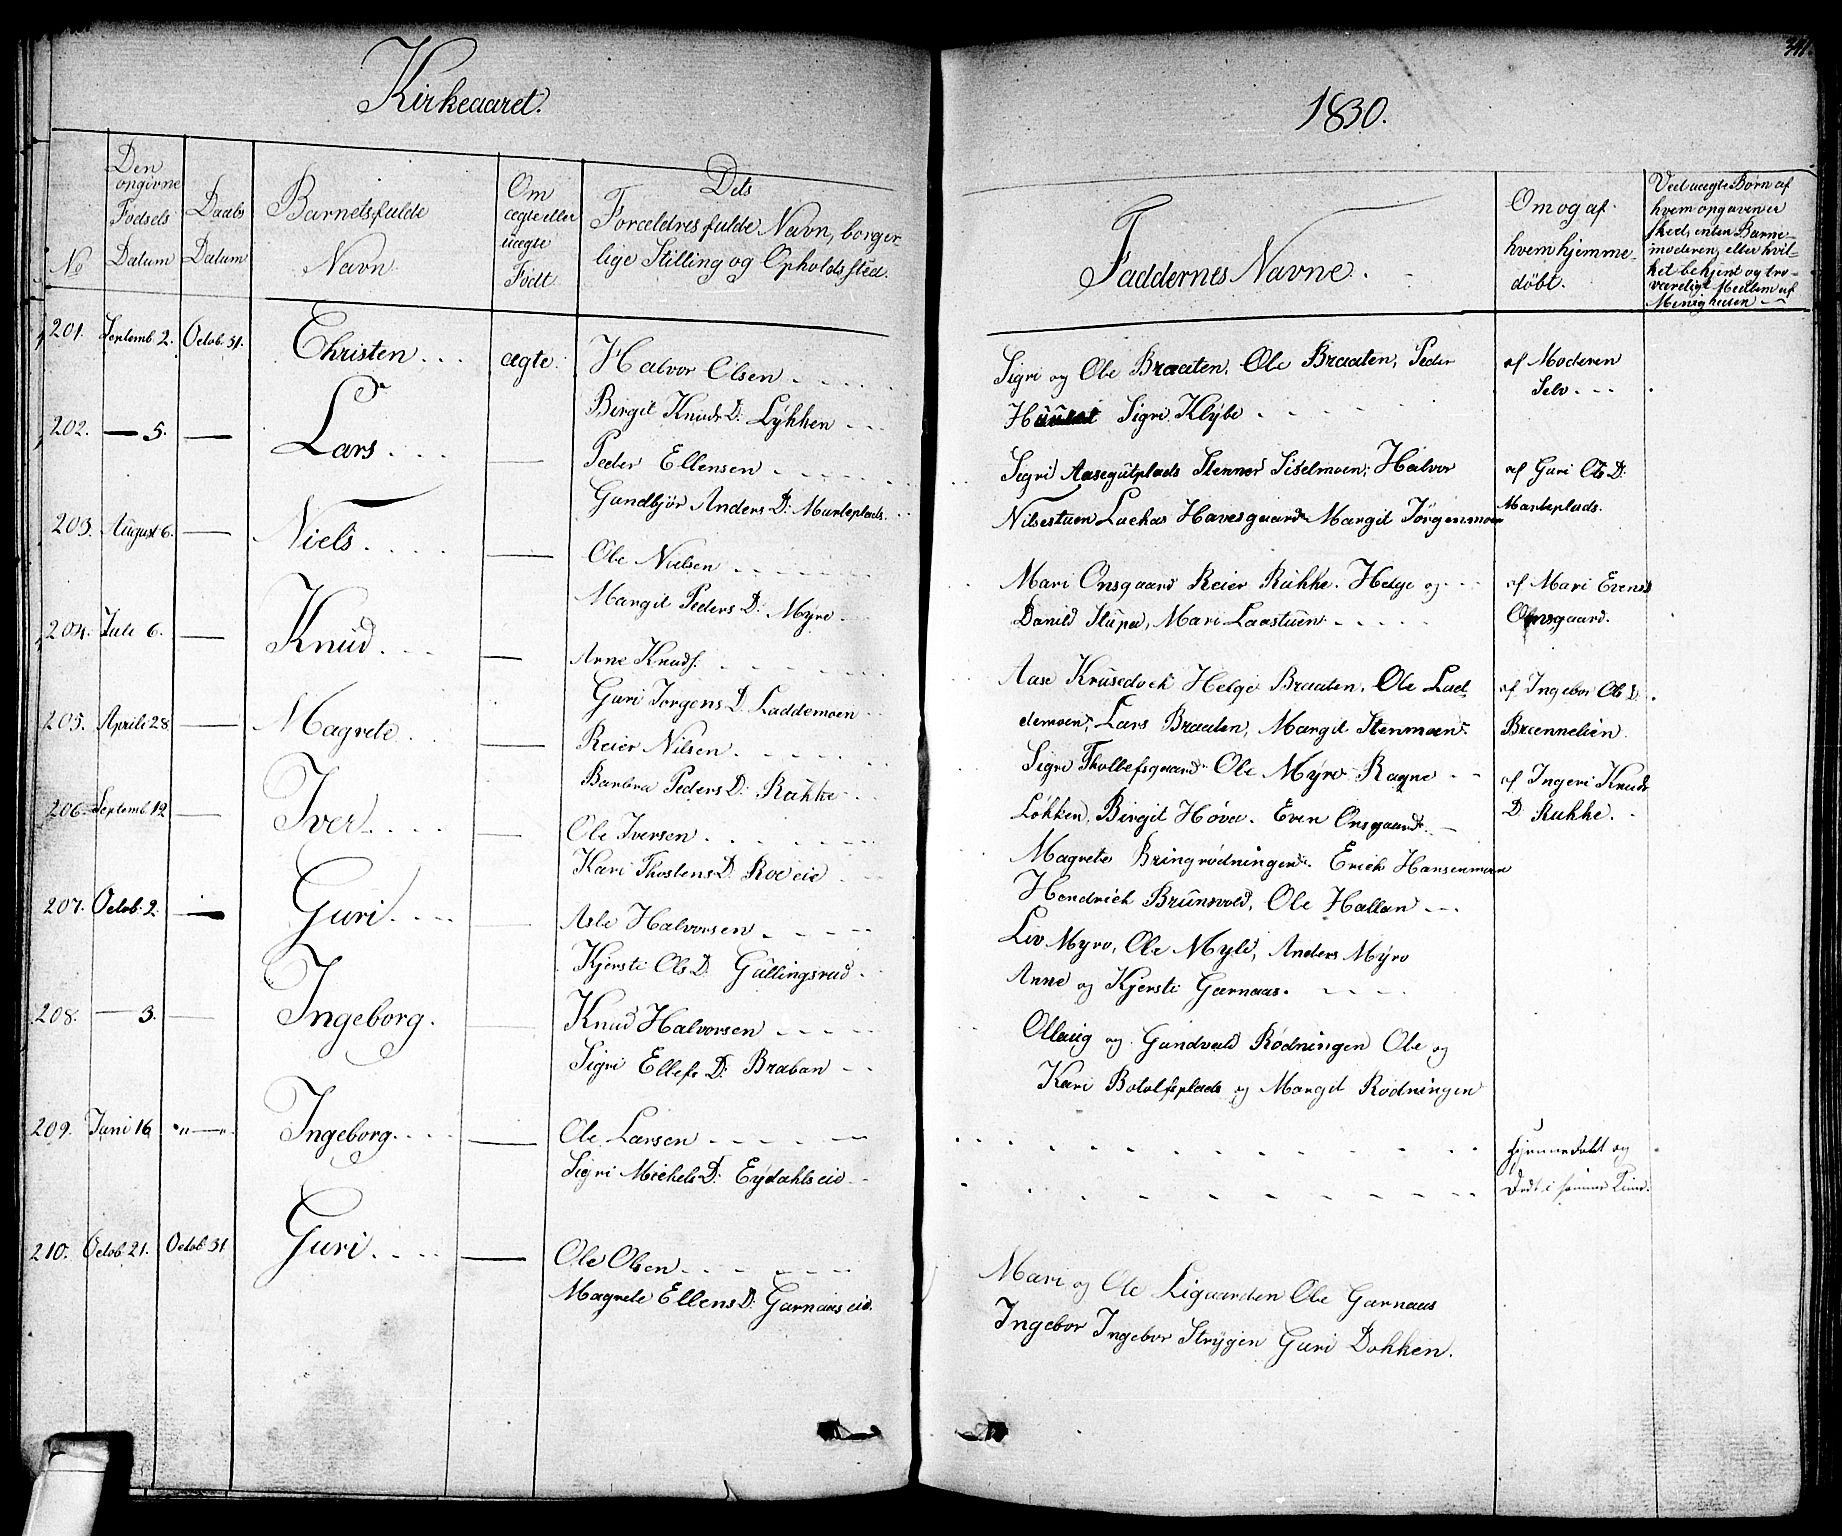 Kirkeaaret.
No
Den opgivne Fodsels Datum
Daabs Datum
Barnets fulde Navn
Om ægte eller uægte Født
Dets Forældres fulde Navn, borger-
lige Stilling og Opholdssted.
201. Septemb. 2. Octob. 31. Christen ægte. Halvor Olsen
Birgit Knuds D: Lykken
202. — 5. — Lars — Peder Ellensen
Gundbjör Anders D: Marteplads.
203. August 6. — Niels — Ole Nielsen
Margit Peders D: Myre
204. Juli 6. — Knud — Arne Knuds.
Guri Jorgens D. Laddemoen
205. Aprili 28 — Magrete — Reier Nilsen
Barbra Peders D: Rukke
206. Septemb. 12 — Iver — Ole Iversen
Kari Thostens D: Roe eie
207. Octob. 2. — Guri — Asle Halvorsen
Kjersti Ols D. Gullingsrud
208. — 3. — Ingeborg. — Knud Halvorsen
Sigri Ellefs D: Braban
209. Juni 16 — Ingeborg — Ole Larsen
Sigri Michels D: Eydahls eie
210. Octob. 21. Octob. 31 Guri — Ole Olsen
Magrete Ellens D: Garnaas eie.
341.
1830.
Faddernes Navne.
Om og af
hvem hjemme-
døbt.
Ved uægte Børn af
hvem opgaven er
sked, enten Barne-
moderen, eller hvil-
ket bekjent og tro-
værdigt Medlem af
Menigheden
Sigri og Ole Braaten, Ole Braaten, Peder af Moderen
Sigri Klybe Selv
Sigri Aasegutplads Stenner Siselmoen, Halvor af Guri Ols D:
Nilsestuen Lachas Havesgaard Margit Jörgenmoen Marteplads.
Mari Onsgaard Reier Rukke. Helge og af Mari Evens D
Danild Stupa, Mari Laastuen Onsgaard.
Aase Krusedock Helge Braaten, Ole Lad af Ingebor Ols D
demoen, Lars Braaten, Margit Stenmoen Brænnelien.
Sigri Thollefsgaard Ole Myro Ragne af Ingeri Knuds
Løkken, Birgit Høva. Even Onsgaard D Rukke.
Magrete Bringrødningen. Erich Hansenmoen
Hendrich Brunsvold, Ole Hallan
Liv Myro, Ole Myld, Anders Myro
Anne og Kjersti Garnaas.
Ollaug og Gundvald Rødningen Ole og
Kari Botolfsplads og Margit Rodningen
Hjemmedøbt og
Død i samme Time.
Mari og Ole Ligaarden Ole Garnaas
Ingebor Ingebor Strygen Guri Dokken.